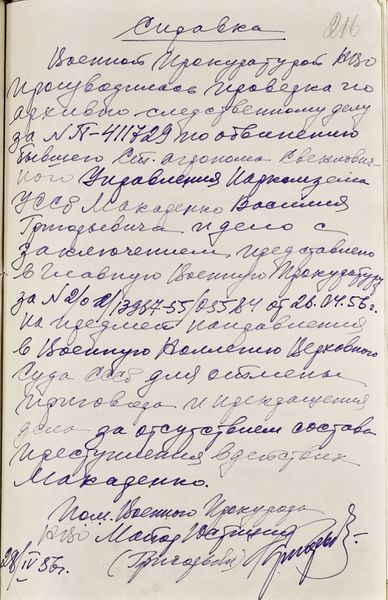 216
Справка
Военной Прокуратурой КВО
производилась проверка по
архивно-следственному делу
за №П-411729 по обвинению
бывшего ст. агронома Свеклович-
ного Управления Наркомзема
УССР Макаденко Василия
Григорьевича и дело с
заключением представлено
в Главную Военную Прокуратуру
от 26.04.56г.
на предмет направления
в Военную Коллегию Верховного
Суда СССР для отмены
приговора и прекращения
дела за отсутствием состава
преступления в действиях
Макаденко.
Пом. Военного Прокурора
КВО Майор Юстиции
28/IV 56г. (Григорьев)